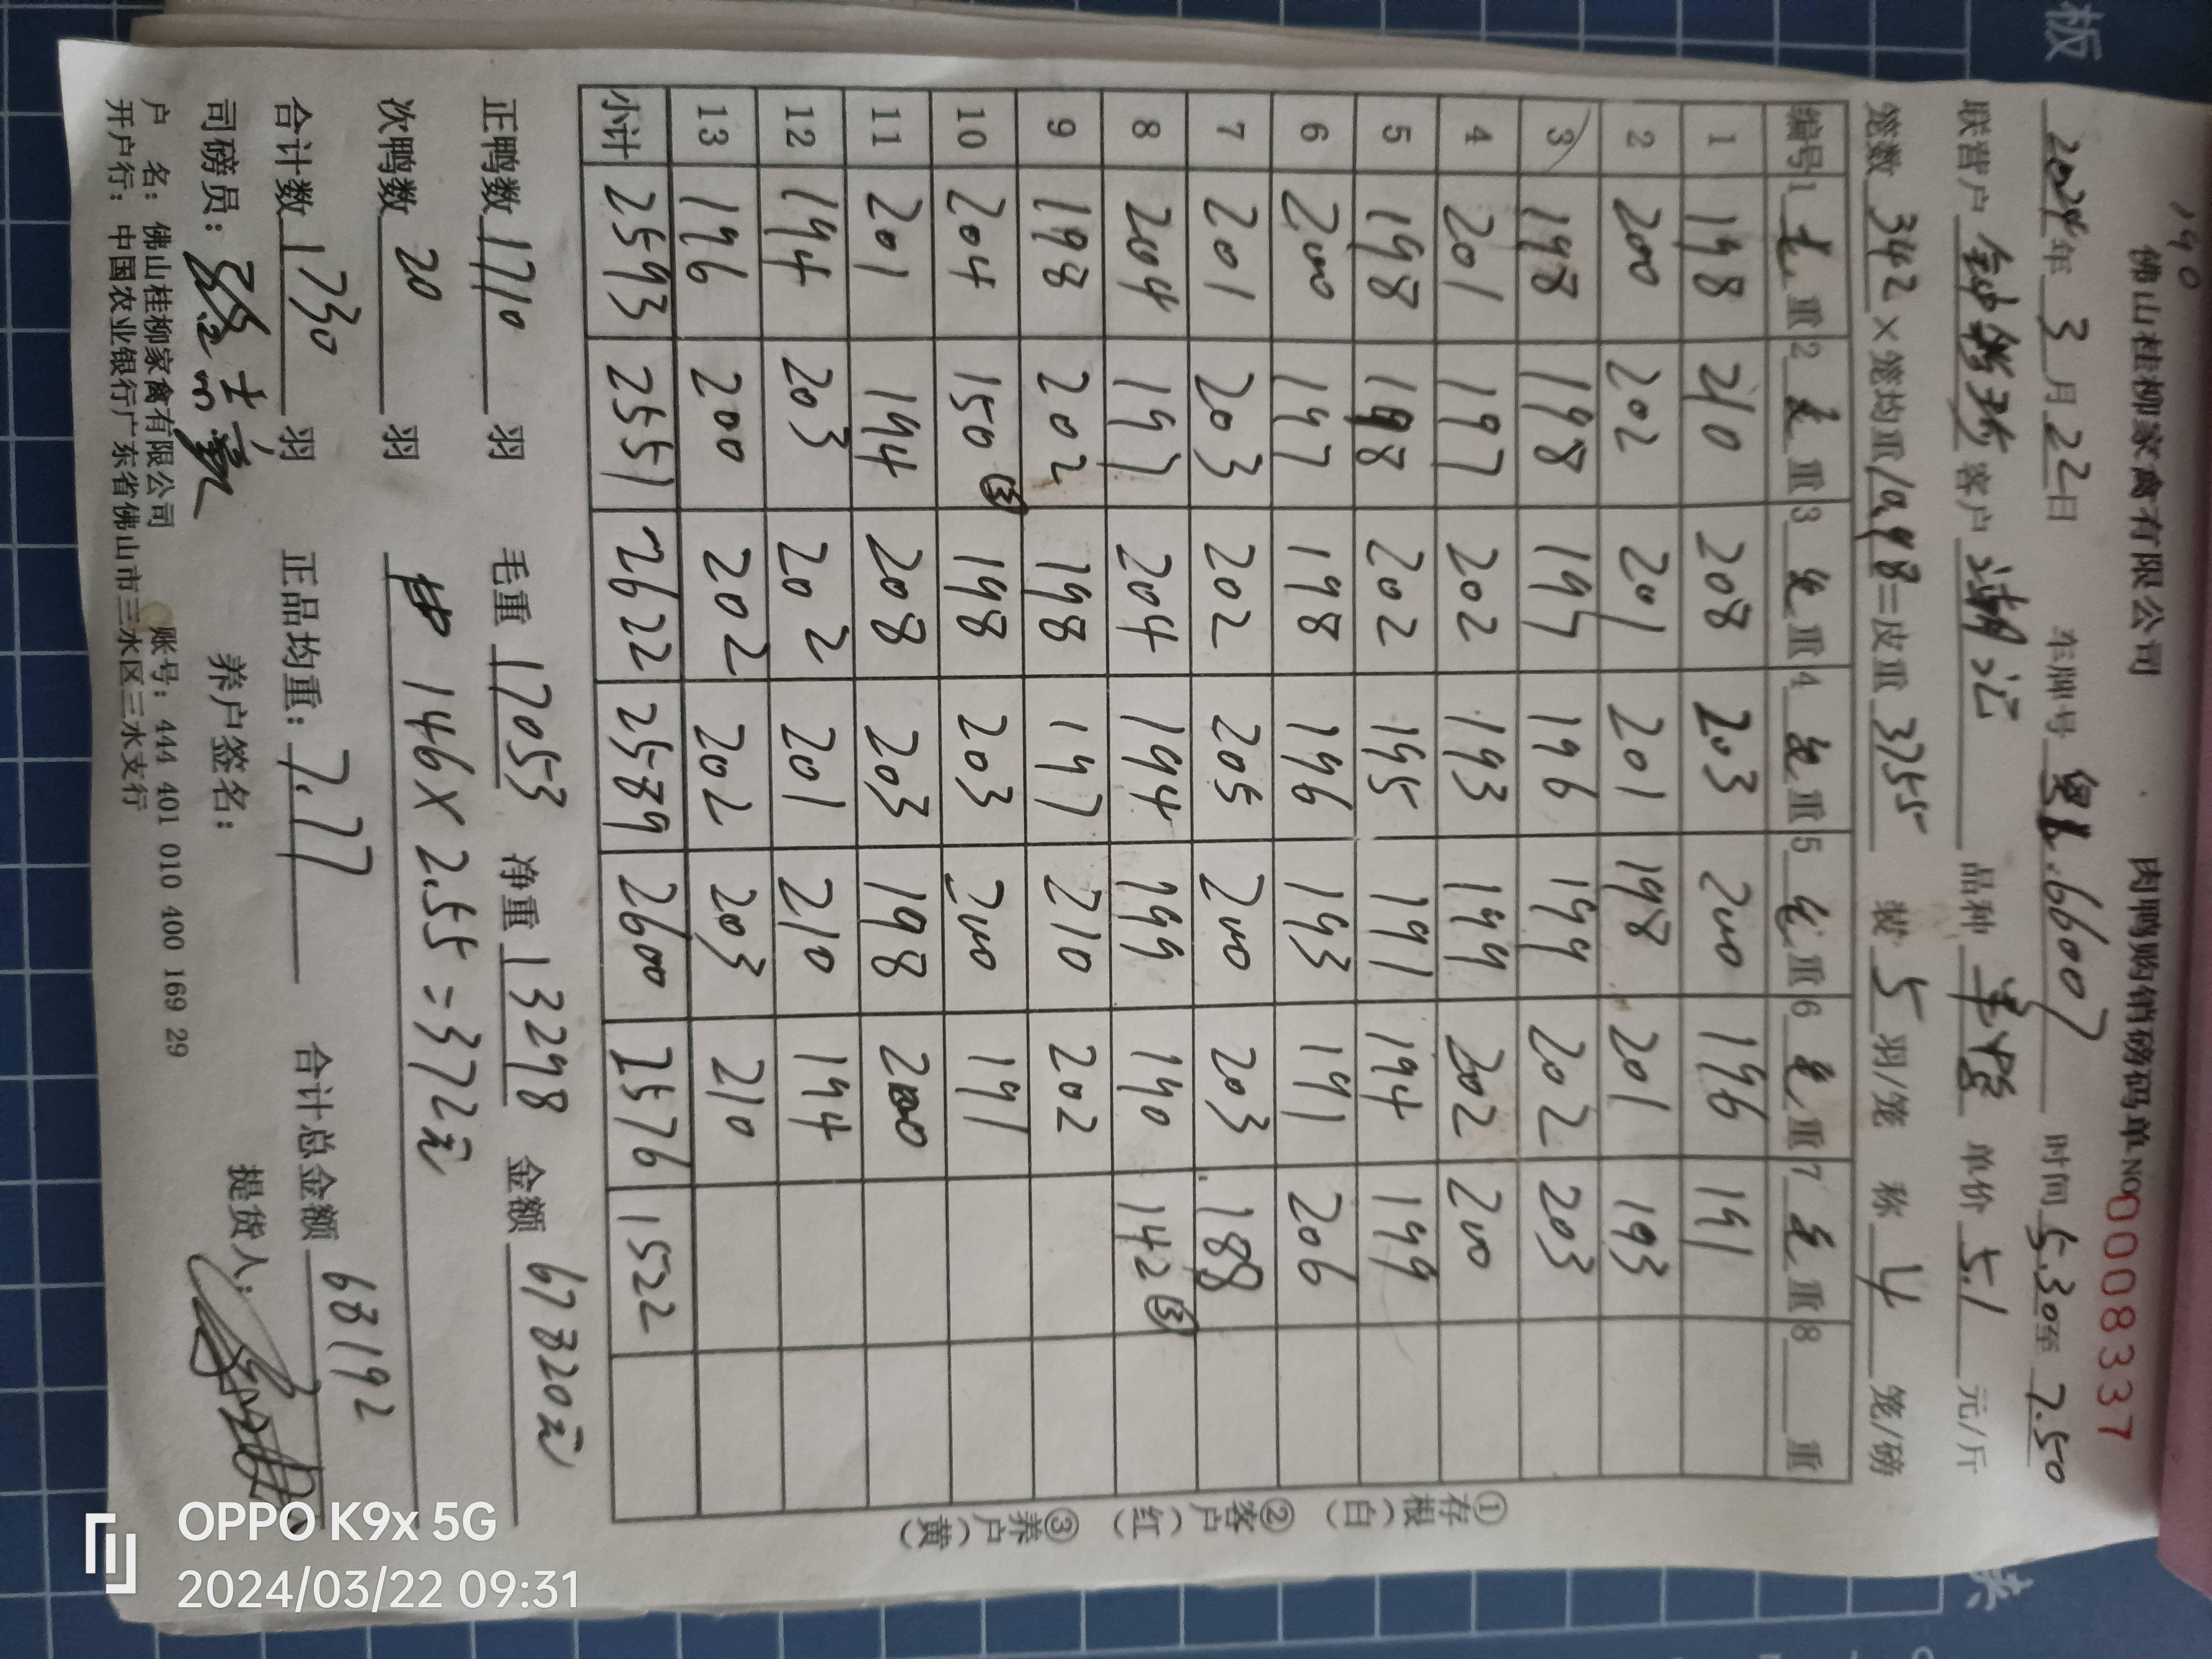 190
佛山桂柳家禽有限公司 肉鸭购销磅码单NO0008337
2024年3月22日 车牌号粤L.66007 时间5.30至7.50
联营户 客户 品种 单价5.1元/斤
笼数342×笼均重10.98=皮重3755 装5羽/笼 称4笼/磅
编号 1毛重 2毛重 3毛重 4毛重 5毛重 6毛重 7毛重 8 重
1 198 210 208 203 200 196 191
2 200 202 201 201 198 201 193
3 198 198 197 196 199 202 203
4 201 197 202 193 199 202 200
5 198 198 202 195 191 194 199
6 200 197 198 196 193 191 206
7 201 203 202 205 200 203 188
8 204 197 204 194 199 190 142③
9 198 202 198 197 210 202
10 204 150③ 198 203 200 191
11 201 194 208 203 198 200
12 194 203 202 201 210 194
13 196 200 202 202 203 210
小计 2593 2551 2622 2589 2600 2576 1522
①存根(白) ②客户(红) ③养户(黄)
正鸭数1710羽 毛重17053 净重13298 金额67820元
次鸭数20羽 146×2.55=372元
合计数1730羽 正品均重:7.77 合计总金额68192
司磅员: 养户签名: 提货人:
户 名:佛山桂柳家禽有限公司 账号:444 401 010 400 169 29
开户行:中国农业银行广东省佛山市三水区三水支行
板
OPPO K9x 5G
2024/03/22 09:31